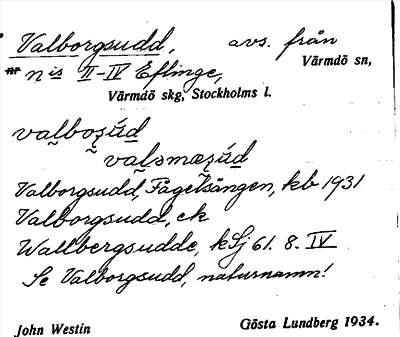 Valborgsudd, avs. från
Värmdö sn,
nis II-IV Eflinge,
Värmdö skg, Stockholms l.
Valborgsudd, Fågelsången, kb 1931
Valborgsudd, ek
Wallbergsudde, kSj 61. 8. IV
Se Valborgsudd, naturnamn!
John Westin Gösta Lundberg 1934.